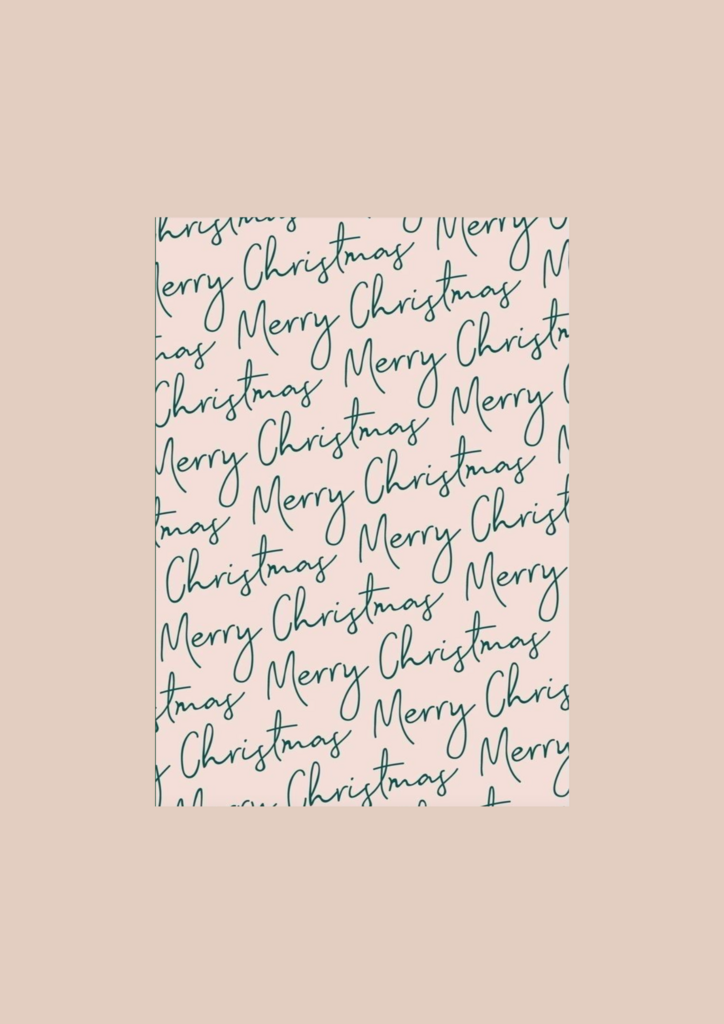 hristmas Merry
erry Christmas M
mas Merry Christmas
Christmas Merry Christm
Merry Christmas Merry
tmas Merry Christmas
Christmas Merry Christ
Merry Christmas Merry
tmas Merry Christmas
Christmas Merry Chris
Merry Christmas Merry